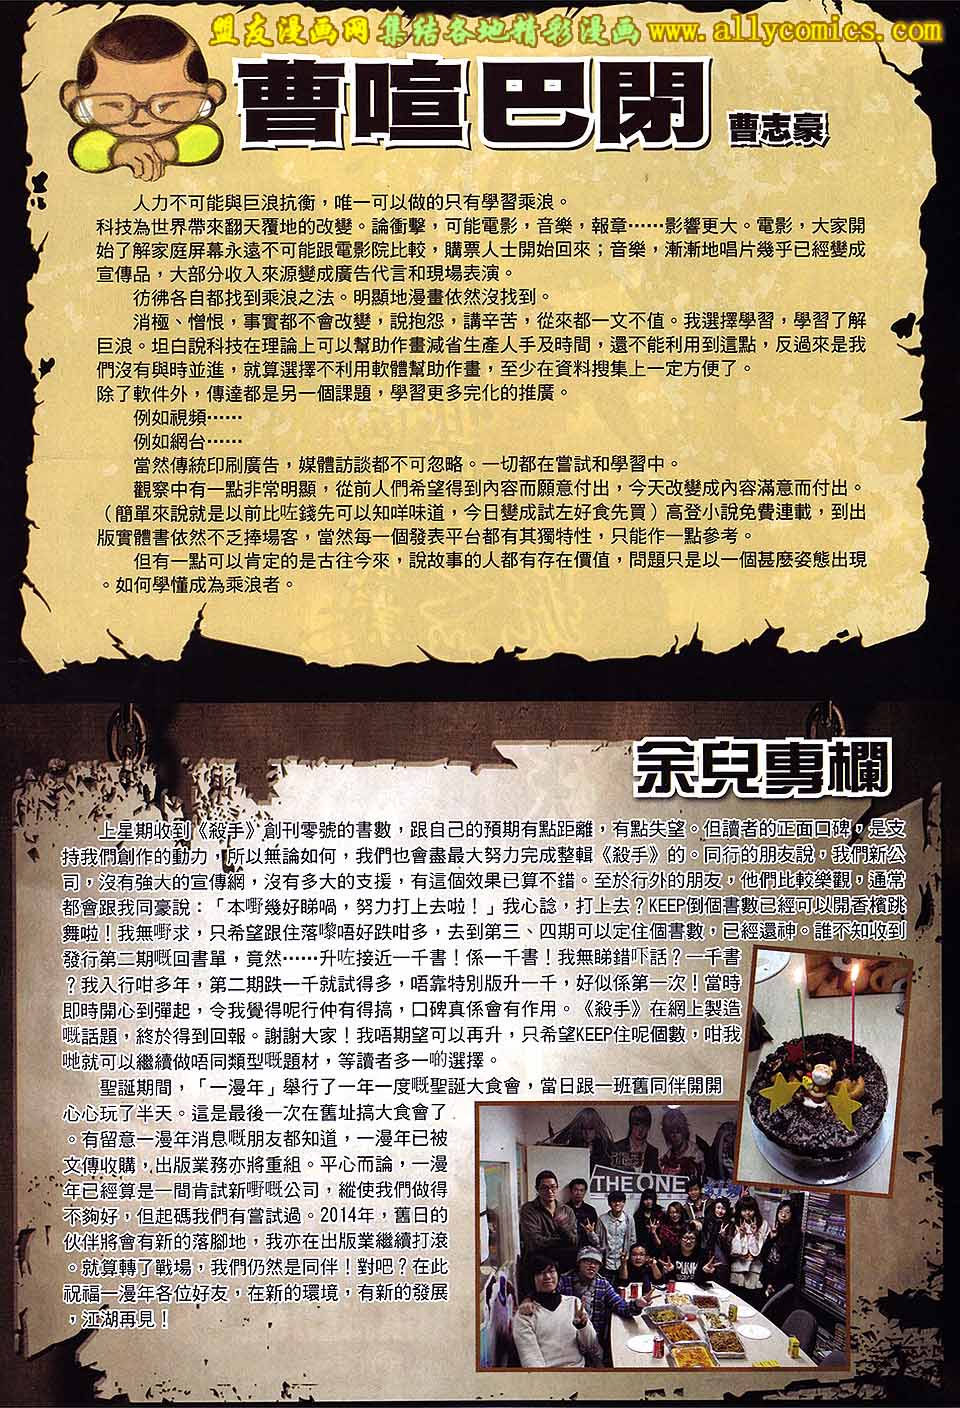 盟友漫画网 集结各地精彩漫画 www.allycomics.com
曹喧巴閉
曹志豪
人力不可能與巨浪抗衡，唯一可以做的只有學習乘浪。
科技為世界帶來翻天覆地的改變。論衝擊，可能電影，音樂，報章⋯⋯影響更大。電影，大家開
始了解家庭屏幕永遠不可能跟電影院比較，購票人士開始回來；音樂，漸漸地唱片幾乎已經變成
宣傳品，大部分收入來源變成廣告代言和現場表演。
彷彿各自都找到乘浪之法。明顯地漫畫依然沒找到。
消極、憎恨，事實都不會改變，說抱怨，講辛苦，從來都一文不值。我選擇學習，學習了解
巨浪。坦白說科技在理論上可以幫助作畫減省生產人手及時間，還不能利用到這點，反過來是我
們沒有與時並進，就算選擇不利用軟體幫助作畫，至少在資料搜集上一定方便了。
除了軟件外，傳達都是另一個課題，學習更多完化的推廣。
例如視頻⋯⋯
例如網台⋯⋯
當然傳統印刷廣告，媒體訪談都不可忽略。一切都在嘗試和學習中。
觀察中有一點非常明顯，從前人們希望得到內容而願意付出，今天改變成內容滿意而付出。
（簡單來說就是以前比咗錢先可以知咩味道，今日變成試左好食先買）高登小說免費連載，到出
版實體書依然不乏捧場客，當然每一個發表平台都有其獨特性，只能作一點參考。
但有一點可以肯定的是古往今來，說故事的人都有存在價值，問題只是以一個甚麼姿態出現
。如何學懂成為乘浪者。
余兒專欄
上星期收到《殺手》創刊零號的書數，跟自己的預期有點距離，有點失望。但讀者的正面口碑，是支
持我們創作的動力，所以無論如何，我們也會盡最大努力完成整輯《殺手》的。同行的朋友說，我們新公
司，沒有強大的宣傳網，沒有多大的支援，有這個效果已算不錯。至於行外的朋友，他們比較樂觀，通常
都會跟我同豪說：「本嘢幾好睇喎，努力打上去啦！」我心諗，打上去？KEEP倒個書數已經可以開香檳跳
舞啦！我無嘢求，只希望跟住落嚟唔好跌咁多，去到第三、四期可以定住個書數，已經還神。誰不知收到
發行第二期嘅回書單，竟然⋯⋯升咗接近一千書！係一千書！我無睇錯吓話？一千書
？我入行咁多年，第二期跌一千就試得多，唔靠特別版升一千，好似係第一次！當時
即時開心到彈起，令我覺得呢行仲有得搞，口碑真係會有作用。《殺手》在網上製造
嘅話題，終於得到回報。謝謝大家！我唔期望可以再升，只希望KEEP住呢個數，咁我
哋就可以繼續做唔同類型嘅題材，等讀者多一啲選擇。
聖誕期間，「一漫年」舉行了一年一度嘅聖誕大食會，當日跟一班舊同伴開開
心心玩了半天。這是最後一次在舊址搞大食會了
。有留意一漫年消息嘅朋友都知道，一漫年已被
文傳收購，出版業務亦將重組。平心而論，一漫
年已經算是一間肯試新嘢嘅公司，縱使我們做得
不夠好，但起碼我們有嘗試過。2014年，舊日的
伙伴將會有新的落腳地，我亦在出版業繼續打滾
。就算轉了戰場，我們仍然是同伴！對吧？在此
祝福一漫年各位好友，在新的環境，有新的發展
，江湖再見！
THE ONE
PUNK